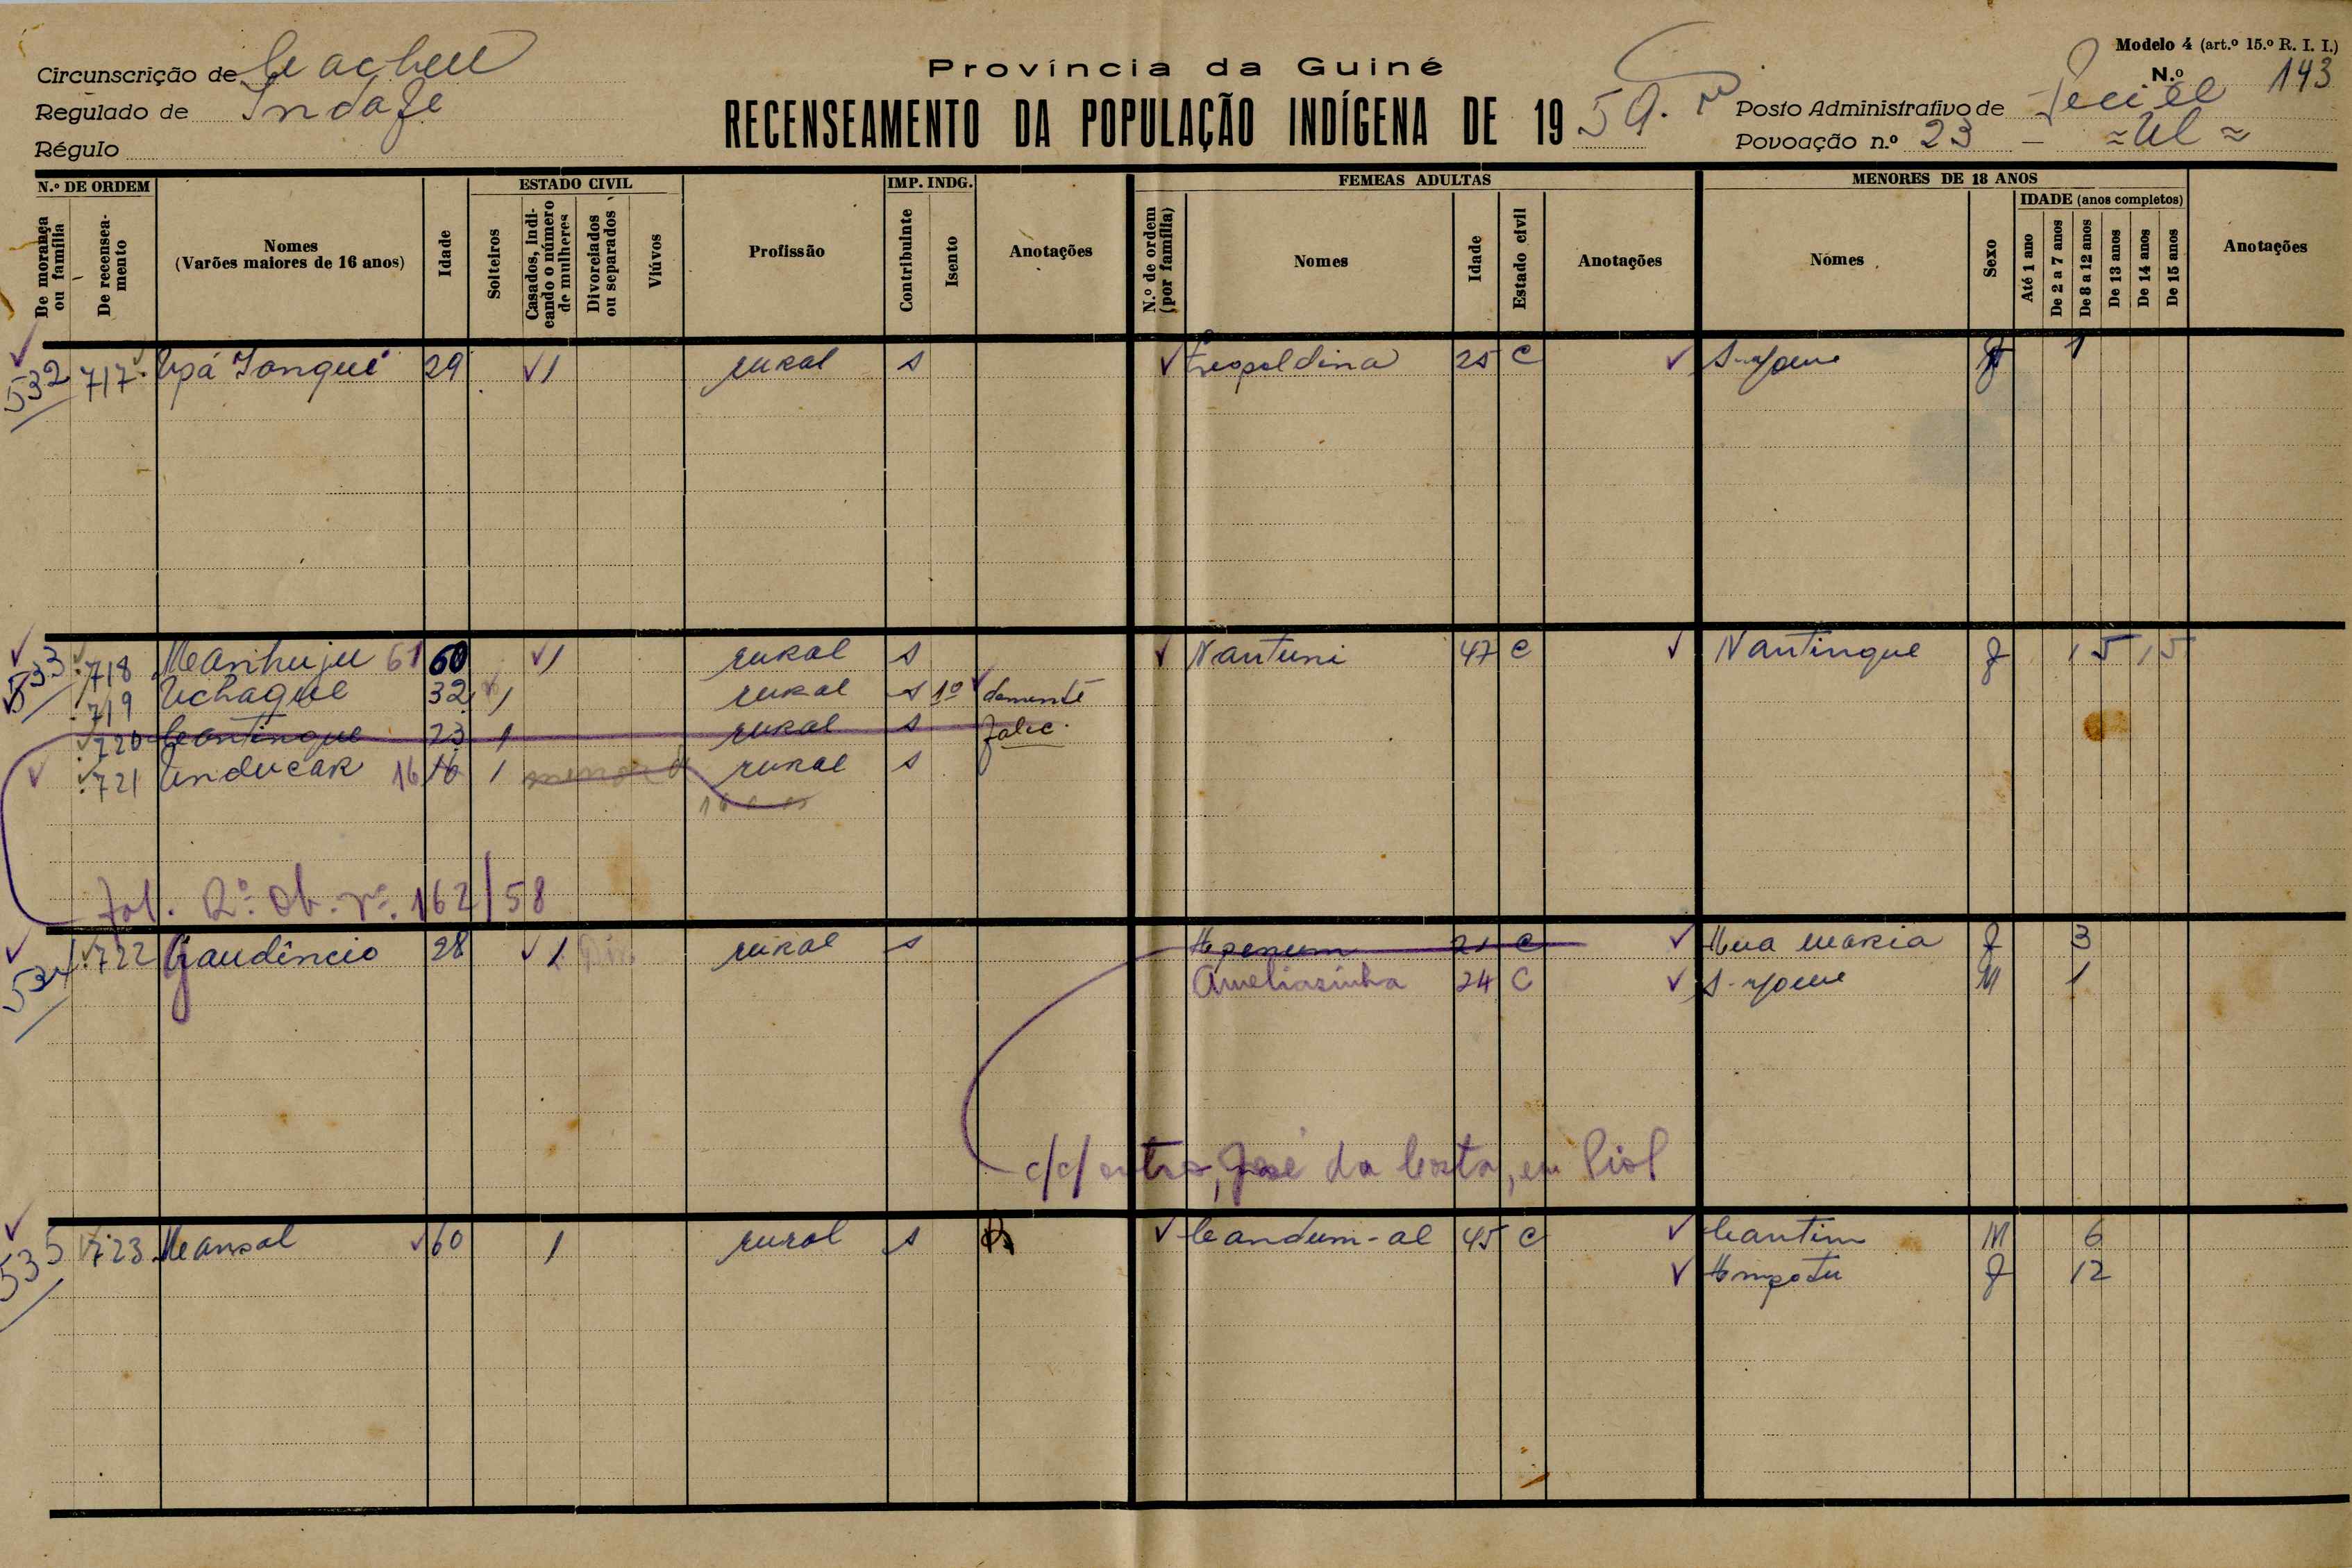 Modelo 4 (art.º 15.º R. I. I.)
Circunscrição de Cacheu
Província da Guiné
N.º 143
Regulado de
RECENSEAMENTO DA POPULAÇÃO INDÍGENA DE 1959.
Posto Administrativo de
Régulo
Povoação n.º 23 -
N.º DE ORDEM
ESTADO CIVIL
IMP. INDG.
FEMEAS ADULTAS
MENORES DE 18 ANOS
De morança ou família
De recenseamento
Nomes
(Varões maiores de 16 anos)
Idade
Solteiros
Casados, indicando o número de mulheres
Divorciados ou separados
Viúvos
Profissão
Contribuinte
Isento
Anotações
N.º de ordem (por família)
Nomes
Idade
Estado civil
Anotações
Nomes
Sexo
IDADE (anos completos)
Até 1 ano
De 2 a 7 anos
De 8 a 12 anos
De 13 anos
De 14 anos
De 15 anos
Anotações
532 717 Upá Tangué 29 1 rural s Leopoldina 25 C S-nome 1
533 718 61 60 1 rural s Nantuni 47 C Nantingue f 15 15
719 Uchague 32 1 rural s 1º
720 Cantingue 23 1 rural s falec.
721 Unducar 16 16 1 rural s
Fal. Rº. Ob. nº. 162/58
534 722 Gaudêncio 28 1 rural s 21 C Ana Maria f 3
Ameliasinha 24 C S-nome M 1
c/c/ outro, José da Costa, em
535 723 Mansal 60 1 rural s Candum-al 45 C Cantim M 6
f 12